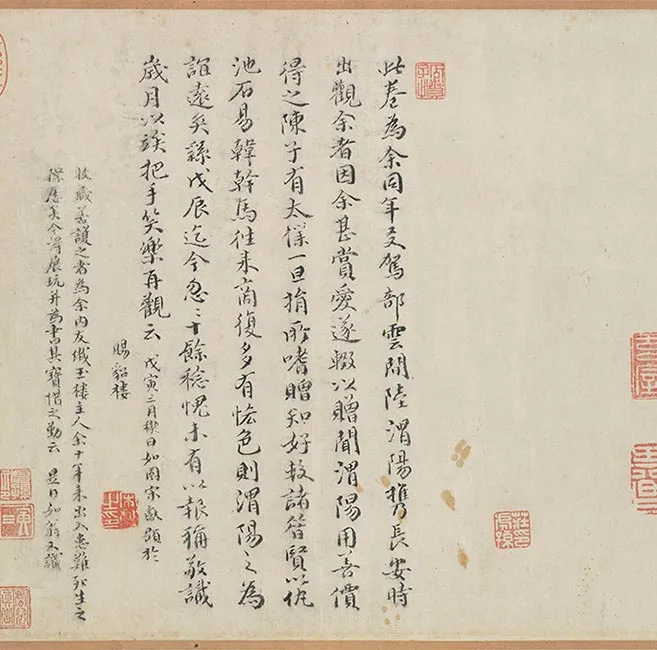 此卷為余同年友駕部雲間陸渭陽攜長安時
出觀余者因余甚賞愛遂輟以贈聞渭陽用善價
得之陳子有太僕一旦捐所嗜贈知好較諸昔賢以仇
池石易韓幹馬往來商復多有恡色則渭陽之為
誼遠矣繇戊辰迄今忽〻十餘稔愧未有以報稱敬識
歲月以竢把手笑樂再觀云 戊寅三月禊日如園宋獻題於
賜貂樓
收藏善護之者為余內友玉樓主人余十年來出入患難死生之
際矣今得展玩并為書其寶惜之勤云 是日如翁又識